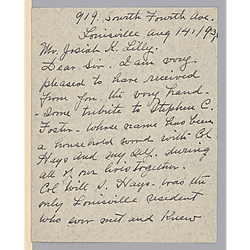 919. South Fourth Ave.
Louisville Aug 14, 193
Mr. Josiah K. Lilly.
Dear Sir. I am very
pleased to have received
from you. the very hand-
-some tribute to Stephen C.
Foster - whose name has been
a household word with Col
Hays and my self. during
all of our lives together.
Col Will S. Hays. was the
only Louisville resident
who ever met and knew